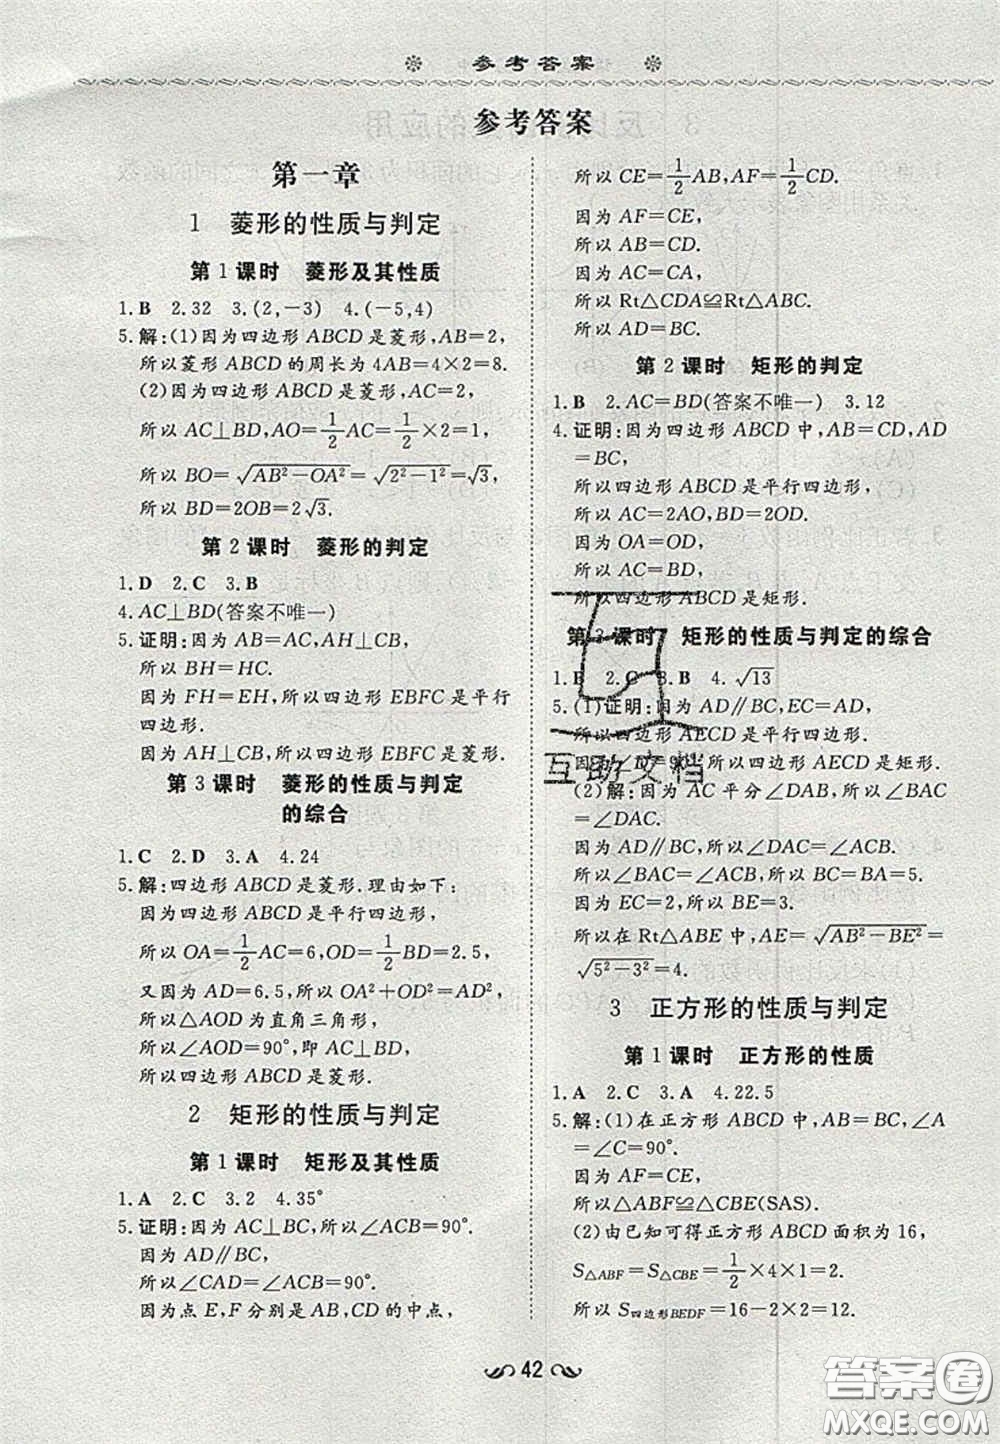 参考答案
参考答案
第一章
1 菱形的性质与判定
第1课时 菱形及其性质
1.B 2.32 3.(2,-3) 4.(-5,4)
5.解:(1)因为四边形ABCD是菱形,AB=2,
所以菱形ABCD的周长为4AB=4×2=8.
(2)因为四边形ABCD是菱形,AC=2,
所以AC⊥BD,AO=1/2AC=1/2×2=1,
所以BO=√(AB²-OA²)=√(2²-1²)=√3,
所以BD=2OB=2√3.
第2课时 菱形的判定
1.D 2.C 3.B
4.AC⊥BD(答案不唯一)
5.证明:因为AB=AC,AH⊥CB,
所以BH=HC.
因为FH=EH,所以四边形EBFC是平行
四边形.
因为AH⊥CB,所以四边形EBFC是菱形.
第3课时 菱形的性质与判定
的综合
1.C 2.D 3.A 4.24
5.解:四边形ABCD是菱形.理由如下:
因为四边形ABCD是平行四边形,
所以OA=1/2AC=6,OD=1/2BD=2.5,
又因为AD=6.5,所以OA²+OD²=AD²,
所以△AOD为直角三角形,
所以∠AOD=90°,即AC⊥BD,
所以四边形ABCD是菱形.
2 矩形的性质与判定
第1课时 矩形及其性质
1.A 2.C 3.2 4.35°
5.证明:因为AC⊥BC,所以∠ACB=90°.
因为AD∥BC,
所以∠CAD=∠ACB=90°.
因为点E,F分别是AB,CD的中点,
所以CE=1/2AB,AF=1/2CD.
因为AF=CE,
所以AB=CD.
因为AC=CA,
所以Rt△CDA≌Rt△ABC.
所以AD=BC.
第2课时 矩形的判定
1.B 2.AC=BD(答案不唯一) 3.12
4.证明:因为四边形ABCD中,AB=CD,AD
=BC,
所以四边形ABCD是平行四边形,
所以AC=2AO,BD=2OD.
因为OA=OD,
所以AC=BD,
所以四边形ABCD是矩形.
第3课时 矩形的性质与判定的综合
1.B 2.C 3.B 4.√13
5.(1)证明:因为AD∥BC,EC=AD,
所以四边形AECD是平行四边形.
因为∠D=90°,所以四边形AECD是矩形.
(2)解:因为AC平分∠DAB,所以∠BAC
=∠DAC.
因为AD∥BC,所以∠DAC=∠ACB.
所以∠BAC=∠ACB,所以BC=BA=5.
因为EC=2,所以BE=3.
所以在Rt△ABE中,AE=√(AB²-BE²)=
√(5²-3²)=4.
3 正方形的性质与判定
第1课时 正方形的性质
1.A 2.C 3.A 4.22.5
5.解:(1)在正方形ABCD中,AB=BC,∠A
=∠C=90°.
因为AF=CE,
所以△ABF≌△CBE(SAS)
(2)由已知可得正方形ABCD面积为16,
S△ABF=S△CBE=1/2×4×1=2.
所以S四边形BEDF=16-2×2=12.
互助文档
42
答案圈
MXQE.COM